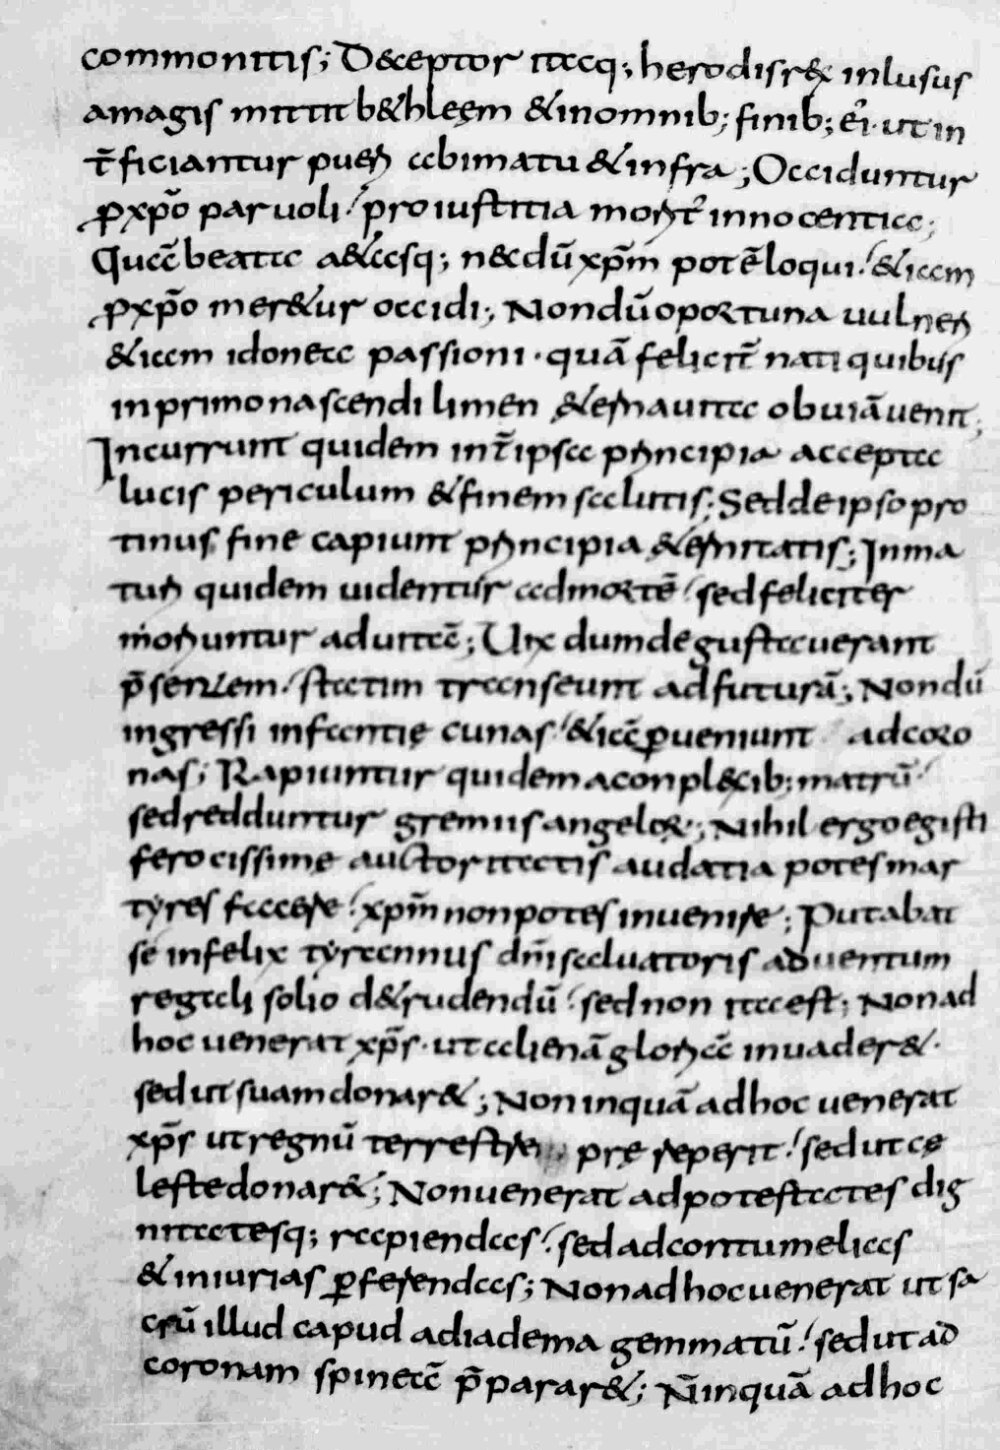 commonitis; Deceptor itaq; herodis rex inlusus
a magis mittit b&hleem & in omnib; finib; ei ut in
t̄ficiantur pueri a bimatu & infra; Occiduntur
p xp̄o paruoli. pro iustitia moriͭ innocentia;
Quā beata aetasq; necdū xp̄m potē loqui. & iam
p xp̄o mer&ur occidi; Nondū oportuna uulneri
& iam idonea passioni. quā felicit̄ nati quibus
in primo nascendi limen aeterna uita obuiā uenit;
Incurrunt quidem int̄ ipsa principia acceptae
lucis periculum & finem salutis; Sed de ipso pro
tinus fine capiunt principia aeternitatis; Inma
turi quidem uidentur ad mortē. sed feliciter
moriuntur ad uitā; Uix dum degustauerant
p̄sentem. statim transeunt ad futurā; Nondū
ingressi infantię cunas. & iā pueniunt ad coro
nas; Rapiuntur quidem a conplexib; matrū.
sed redduntur gremiis angelorum; Nihil ergo egisti
ferocissime auctoritatis audatia potes mar
tyres facere. xp̄m non potes inuenire; Putabat
se infelix tyrannus dn̄i saluatoris aduentum
regali solio d&rudendū. sed non ita est; Non ad
hoc uenerat xp̄s. ut alienā gloriā inuader&.
sed ut suam donar&; Non inquā ad hoc uenerat
xp̄s ut regnū terrestre pręreperit. sed ut cę
leste donar&; Non uenerat ad potestates dig
nitatesq; rapiendas. sed ad contumelias
& iniurias pferendas; Non ad hoc uenerat ut sa
crū illud capud a diadema gemmatū. sed ut ad
coronam spineā p̄parar&; N̄ inquā ad hoc